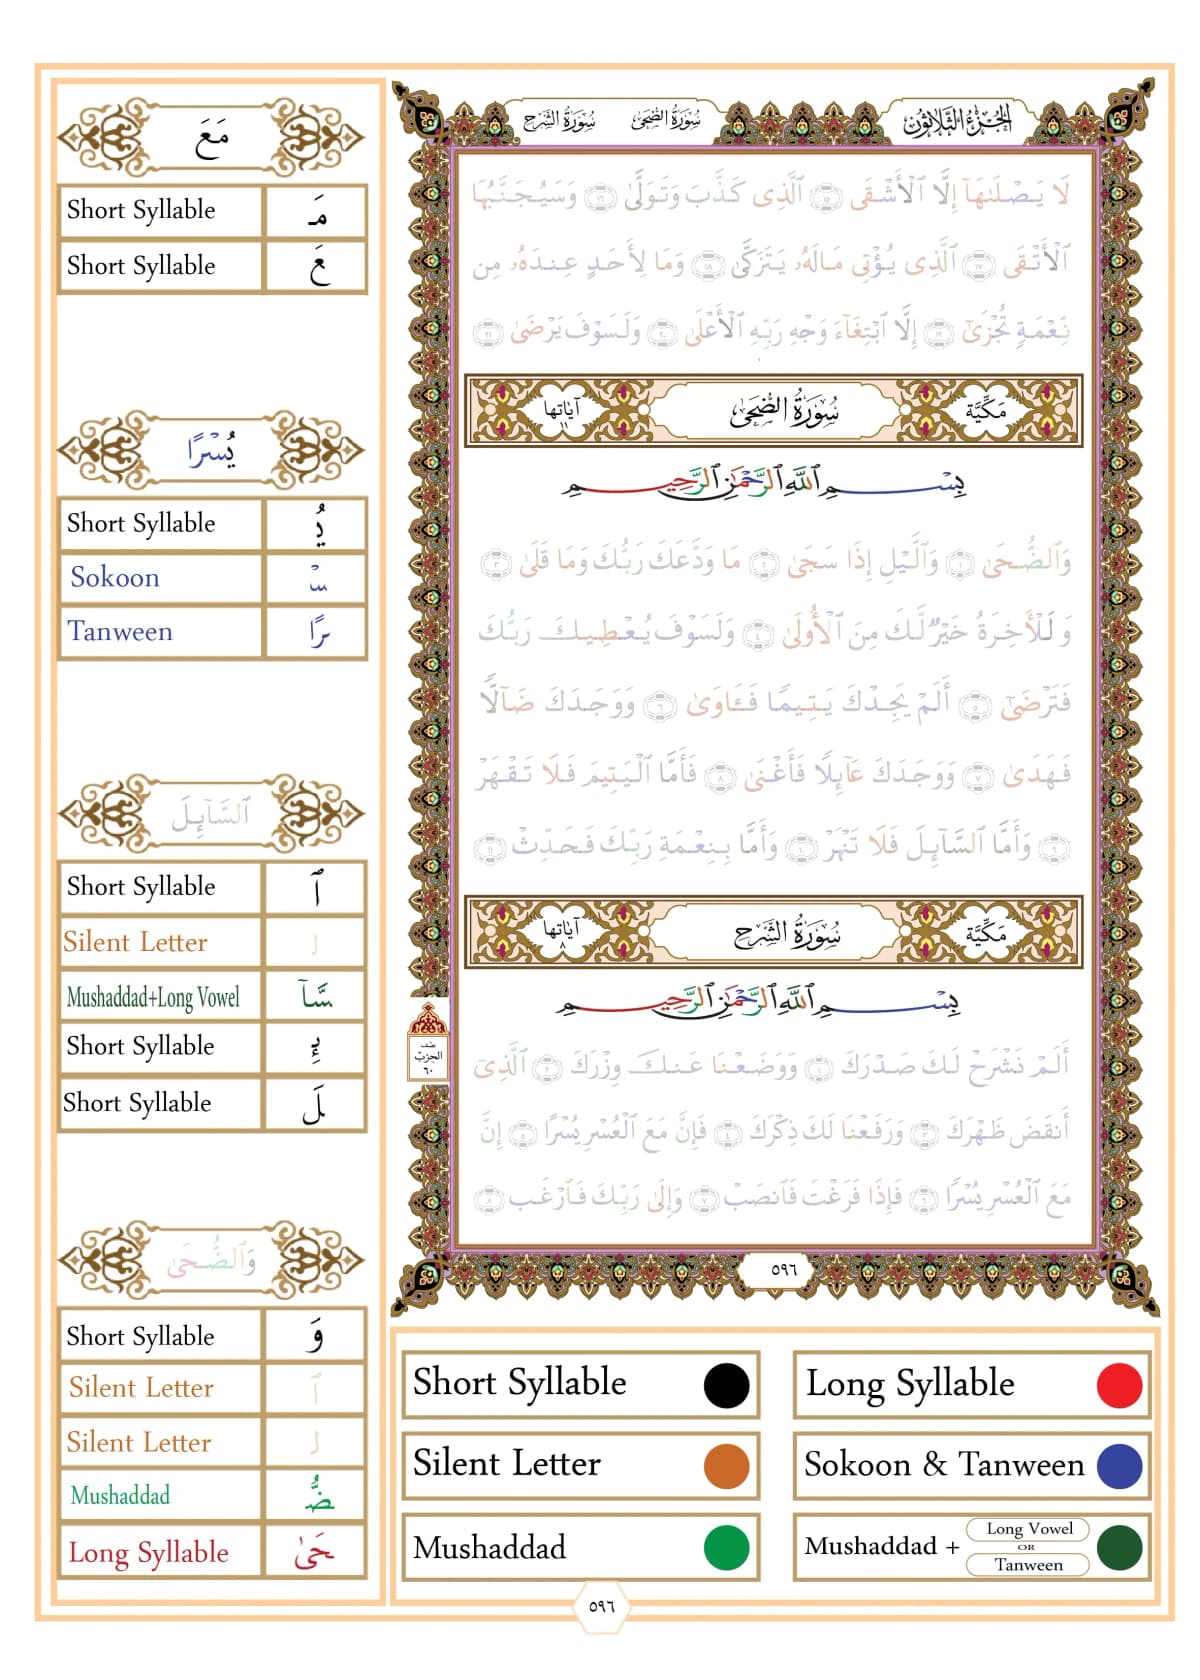 الجزء الثلاثون سورة الضحى سورة الشرح
لَا يَصْلَىٰهَآ إِلَّا ٱلْأَشْقَى ١٥ ٱلَّذِى كَذَّبَ وَتَوَلَّىٰ ١٦ وَسَيُجَنَّبُهَا
ٱلْأَتْقَى ١٧ ٱلَّذِى يُؤْتِى مَالَهُۥ يَتَزَكَّىٰ ١٨ وَمَا لِأَحَدٍ عِندَهُۥ مِن
نِّعْمَةٍ تُجْزَىٰٓ ١٩ إِلَّا ٱبْتِغَآءَ وَجْهِ رَبِّهِ ٱلْأَعْلَىٰ ٢٠ وَلَسَوْفَ يَرْضَىٰ ٢١
مَكِّيَّة سُورَةُ الضُّحَىٰ آيَاتها ١١
بِسْمِ ٱللَّهِ ٱلرَّحْمَٰنِ ٱلرَّحِيمِ
وَٱلضُّحَىٰ ١ وَٱلَّيْلِ إِذَا سَجَىٰ ٢ مَا وَدَّعَكَ رَبُّكَ وَمَا قَلَىٰ ٣
وَلَلْأَخِرَةُ خَيْرٌ لَّكَ مِنَ ٱلْأُولَىٰ ٤ وَلَسَوْفَ يُعْطِيكَ رَبُّكَ
فَتَرْضَىٰٓ ٥ أَلَمْ يَجِدْكَ يَتِيمًا فَـَٔاوَىٰ ٦ وَوَجَدَكَ ضَآلًّا
فَهَدَىٰ ٧ وَوَجَدَكَ عَآئِلًا فَأَغْنَىٰ ٨ فَأَمَّا ٱلْيَتِيمَ فَلَا تَقْهَرْ
٩ وَأَمَّا ٱلسَّآئِلَ فَلَا تَنْهَرْ ١٠ وَأَمَّا بِنِعْمَةِ رَبِّكَ فَحَدِّثْ ١١
مَكِّيَّة سُورَةُ الشَّرْحِ آيَاتها ٨
بِسْمِ ٱللَّهِ ٱلرَّحْمَٰنِ ٱلرَّحِيمِ
أَلَمْ نَشْرَحْ لَكَ صَدْرَكَ ١ وَوَضَعْنَا عَنكَ وِزْرَكَ ٢ ٱلَّذِىٓ
أَنقَضَ ظَهْرَكَ ٣ وَرَفَعْنَا لَكَ ذِكْرَكَ ٤ فَإِنَّ مَعَ ٱلْعُسْرِ يُسْرًا ٥ إِنَّ
مَعَ ٱلْعُسْرِ يُسْرًا ٦ فَإِذَا فَرَغْتَ فَٱنصَبْ ٧ وَإِلَىٰ رَبِّكَ فَٱرْغَب ٨
نصف
الحزب
٦٠
٥٩٦
مَعَ
Short Syllable مَـ
Short Syllable عَ
يُسْرًا
Short Syllable يُ
Sokoon سْـ
Tanween رًا
ٱلسَّآئِلَ
Short Syllable ٱ
Silent Letter لـ
Mushaddad+Long Vowel سَّآ
Short Syllable ئِ
Short Syllable لَ
وَٱلضُّحَىٰ
Short Syllable وَ
Silent Letter ٱ
Silent Letter لـ
Mushaddad ضُّ
Long Syllable حَىٰ
Short Syllable
Long Syllable
Silent Letter
Sokoon & Tanween
Mushaddad
Mushaddad + Long Vowel
OR
Tanween
٥٩٦